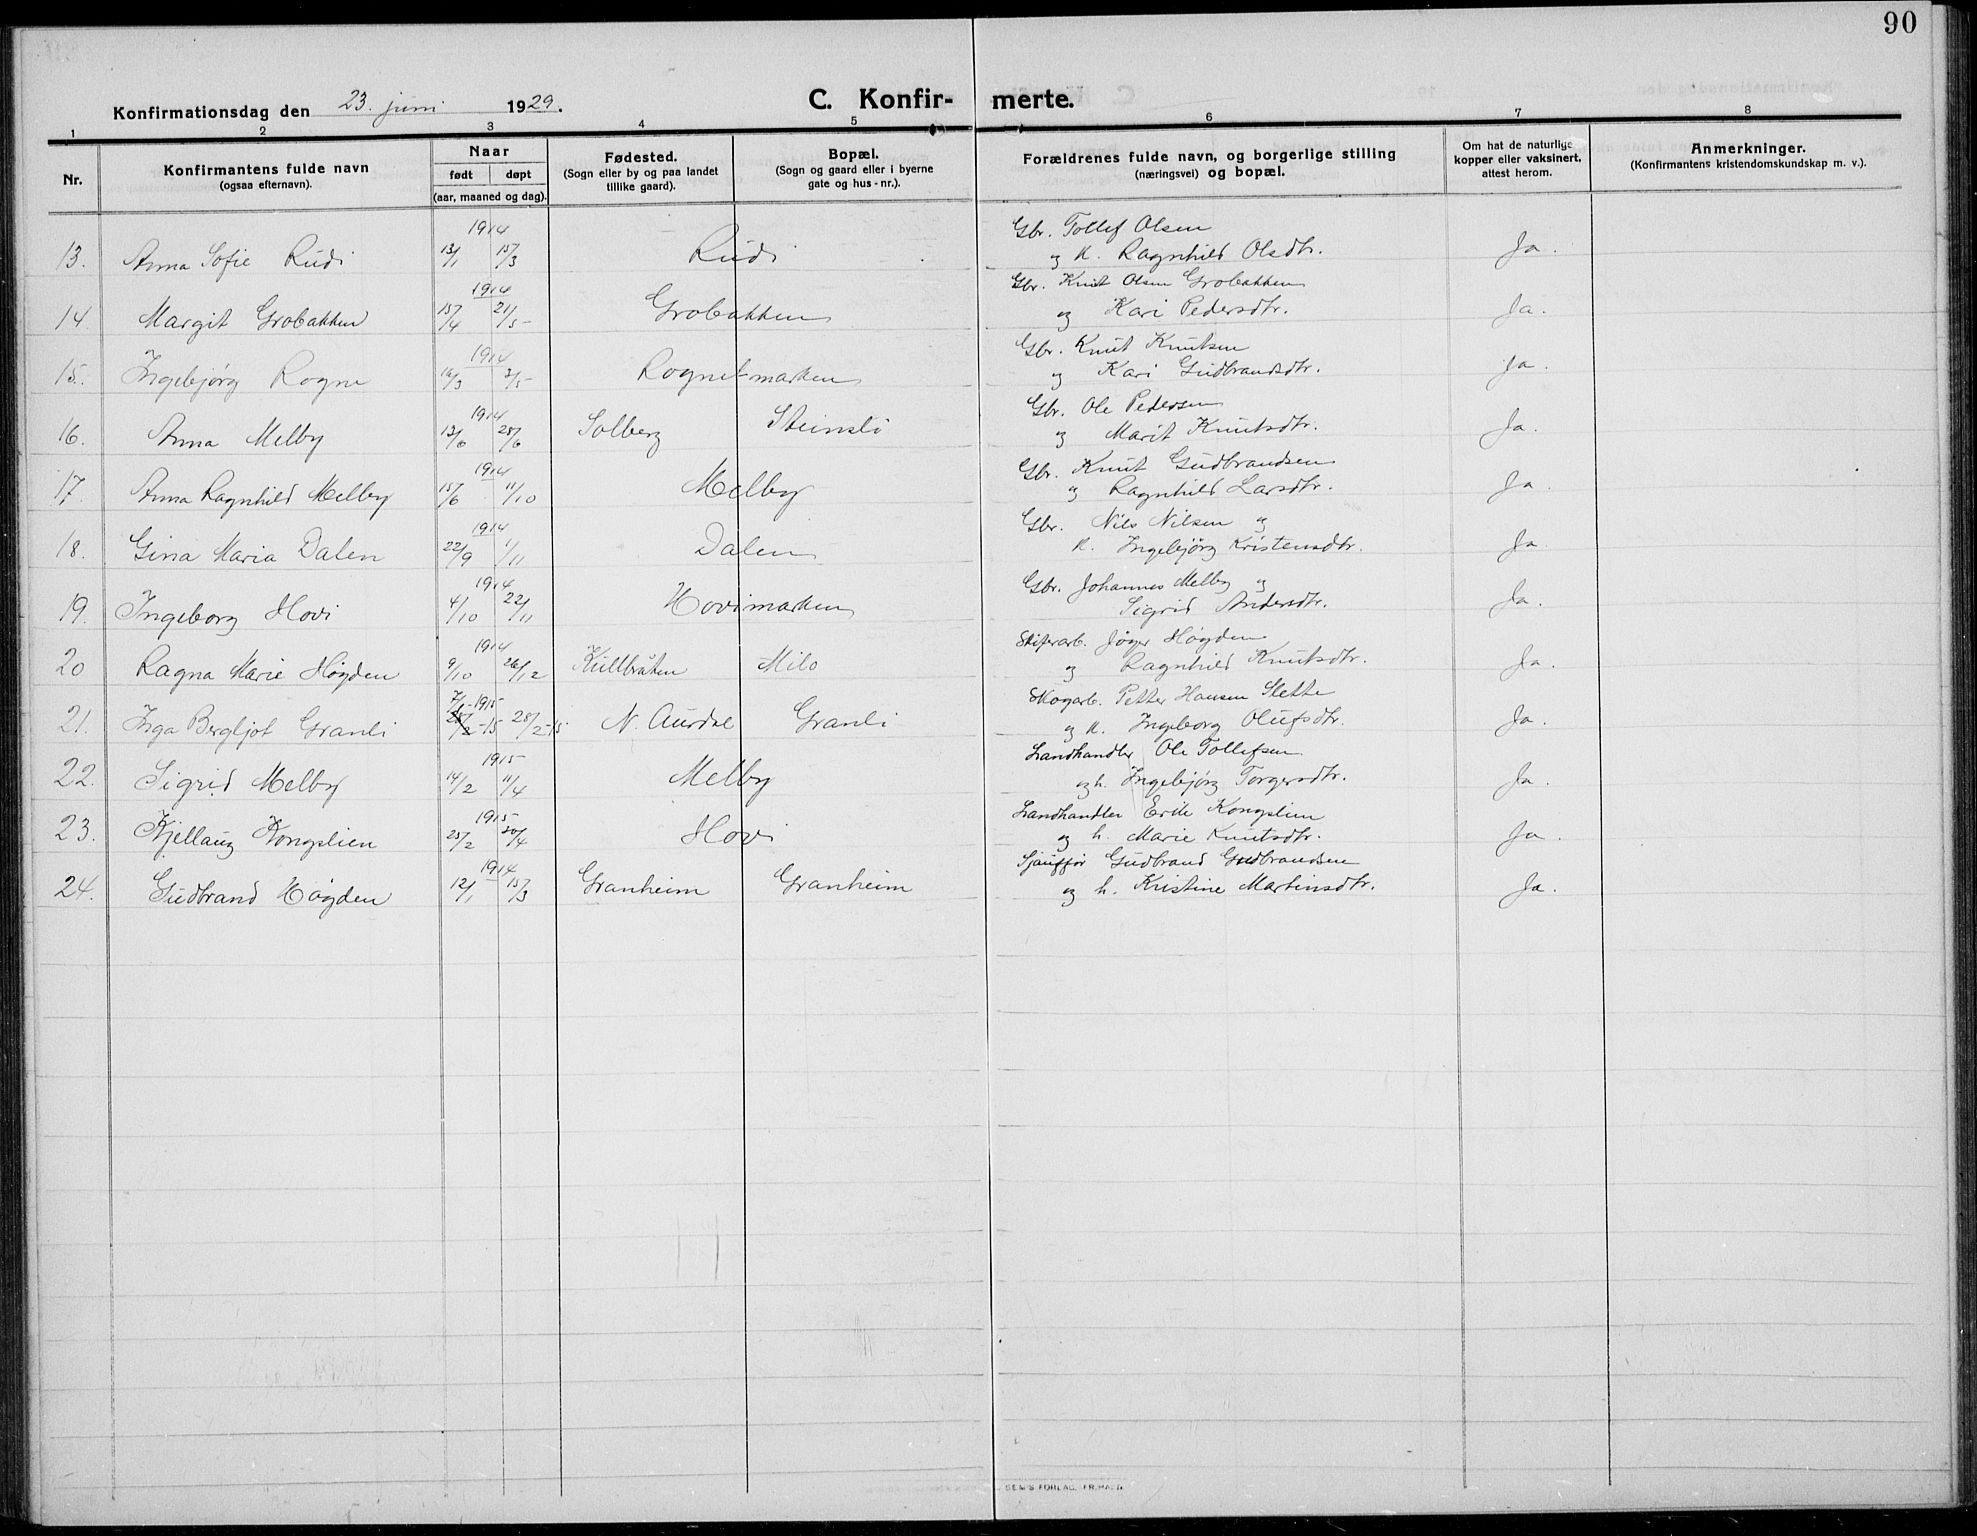 90
Konfirmationsdag den 23. juni 1929.
C. Konfir- merte.
1 2 3 4 5 6 7 8
Nr.
Konfirmantens fulde navn
(ogsaa efternavn).
Naar
født døpt
(aar, maaned og dag).
Fødested.
(Sogn eller by og paa landet
tillike gaard).
Bopæl.
(Sogn og gaard eller i byerne
gate og hus-nr.).
Forældrenes fulde navn, og borgerlige stilling
(næringsvei) og bopæl.
Om hat de naturlige
kopper eller vaksinert,
attest herom.
Anmerkninger.
(Konfirmantens kristendomskundskap m. v.).
1914 Gbr. Tollef Olsen
13. Anna Sofie Rudi 13/1 15/3 Rudi og k. Ragnhild Olsdtr. Ja.
1914 Gbr. Knut Olsen Grobakken
14. Margit Grobakken 15/4 21/5 Grobakken og Kari Pedersdtr. Ja.
1914 Gbr. Knut Knutsen
15. Ingebjørg Rogne 16/3 3/5 Rognemarken og Kari Gudbrandsdtr. Ja.
1914 Gbr. Ole Pedersen
16. Anna Melby 13/6 28/6 Solberg Steinslö og Marit Knutsdtr. Ja.
1914 Gbr. Knut Gudbrandsen
17. Anna Ragnhild Melby 15/6 11/10 Melby og Ragnhild Larsdtr. Ja
1914 Gbr. Nils Nilsen og
18. Gina Maria Dalen 22/9 1/11 Dalen k. Ingebjörg Kristensdtr. Ja
1914 Gbr. Johannes Melby og
19. Ingeborg Hovi 4/10 22/11 Hovimarken Sigrid Andersdtr. Ja.
1914 Skiferarb. Jöger Högden
20 Ragna Marie Högden 9/10 26/12 Kullbråten Milo og Ragnhild Knutsdtr. Ja.
7/1-1915 Skogarb. Petter Hansen Slette
21. Inga Bergljot Granli 28/2-15 28/2-15 N. Aurdal Granli og k. Ingeborg Olufsdtr. Ja.
1915 Landhandler Ole Tollefsen
22. Sigrid Melby 14/2 11/4 Melby og h. Ingebjörg Torgersdtr. Ja.
1915 Landhandler Erik Kongslien
23. Kjellaug Kongslien 25/2 30/4 Hovi og h. Marie Knutsdtr. Ja.
1914 Sjauffør Gudbrand Gudbrandsen
24. Gudbrand Högden 12/1 15/3 Granheim Granheim og h. Kristine Martinsdtr. Ja.
SEM'S FORLAG, FR.HALD